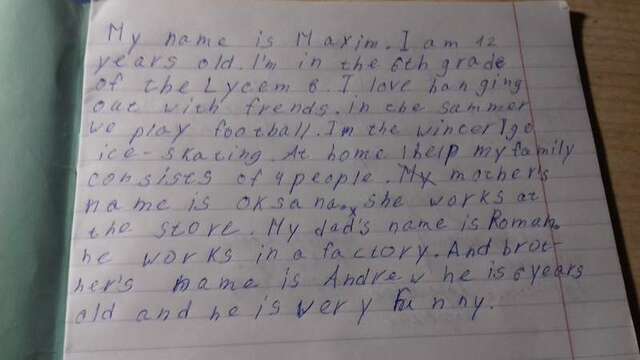 My name is Maxim. I am 12
years old. I'm in the 6th grade
of the Lycem 6. I love hanging
out with frends. In the sammer
we play football. Im the winter I go
ice-skating. At home I help my family
consists of 4 people. My mother's
name is oksana. she works at
the store. My dad's name is Roman.
he works in a factory. And brot-
her's name is Andrew he is 6 years
old and he is very funny.